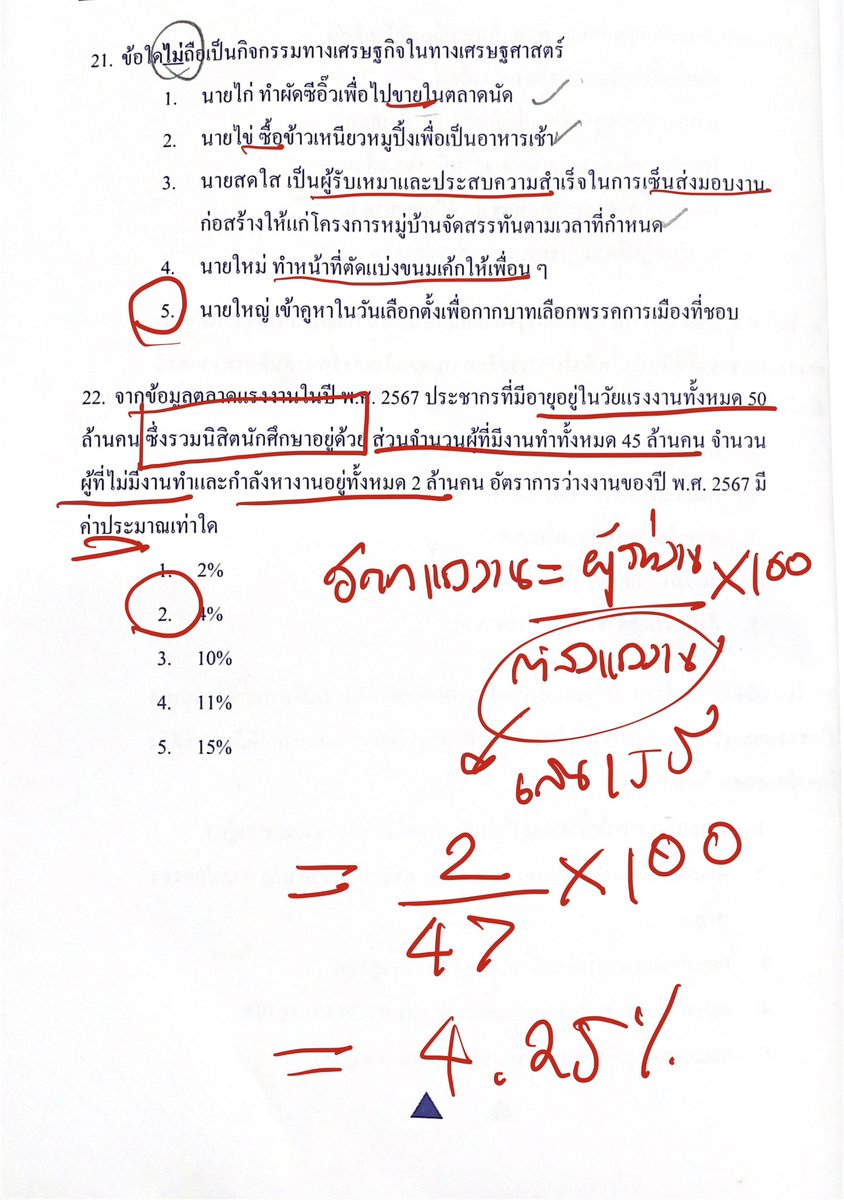 21. ข้อใดไม่ถือเป็นกิจกรรมทางเศรษฐกิจในทางเศรษฐศาสตร์
1. นายไก่ ทำผัดซีอิ๊วเพื่อไปขายในตลาดนัด
2. นายไข่ ซื้อข้าวเหนียวหมูปิ้งเพื่อเป็นอาหารเช้า
3. นายสดใส เป็นผู้รับเหมาและประสบความสำเร็จในการเซ็นส่งมอบงาน
ก่อสร้างให้แก่โครงการหมู่บ้านจัดสรรทันตามเวลาที่กำหนด
4. นายใหม่ ทำหน้าที่ตัดแบ่งขนมเค้กให้เพื่อน ๆ
5. นายใหญ่ เข้าคูหาในวันเลือกตั้งเพื่อกากบาทเลือกพรรคการเมืองที่ชอบ
22. จากข้อมูลตลาดแรงงานในปี พ.ศ. 2567 ประชากรที่มีอายุอยู่ในวัยแรงงานทั้งหมด 50
ล้านคน ซึ่งรวมนิสิตนักศึกษาอยู่ด้วย ส่วนจำนวนผู้ที่มีงานทำทั้งหมด 45 ล้านคน จำนวน
ผู้ที่ไม่มีงานทำและกำลังหางานอยู่ทั้งหมด 2 ล้านคน อัตราการว่างงานของปี พ.ศ. 2567 มี
ค่าประมาณเท่าใด
1. 2%
2. 4%
3. 10%
4. 11%
5. 15%
= ผู้ว่างงาน × 100
กำลังแรงงาน
= 2 × 100
47
= 4.25%